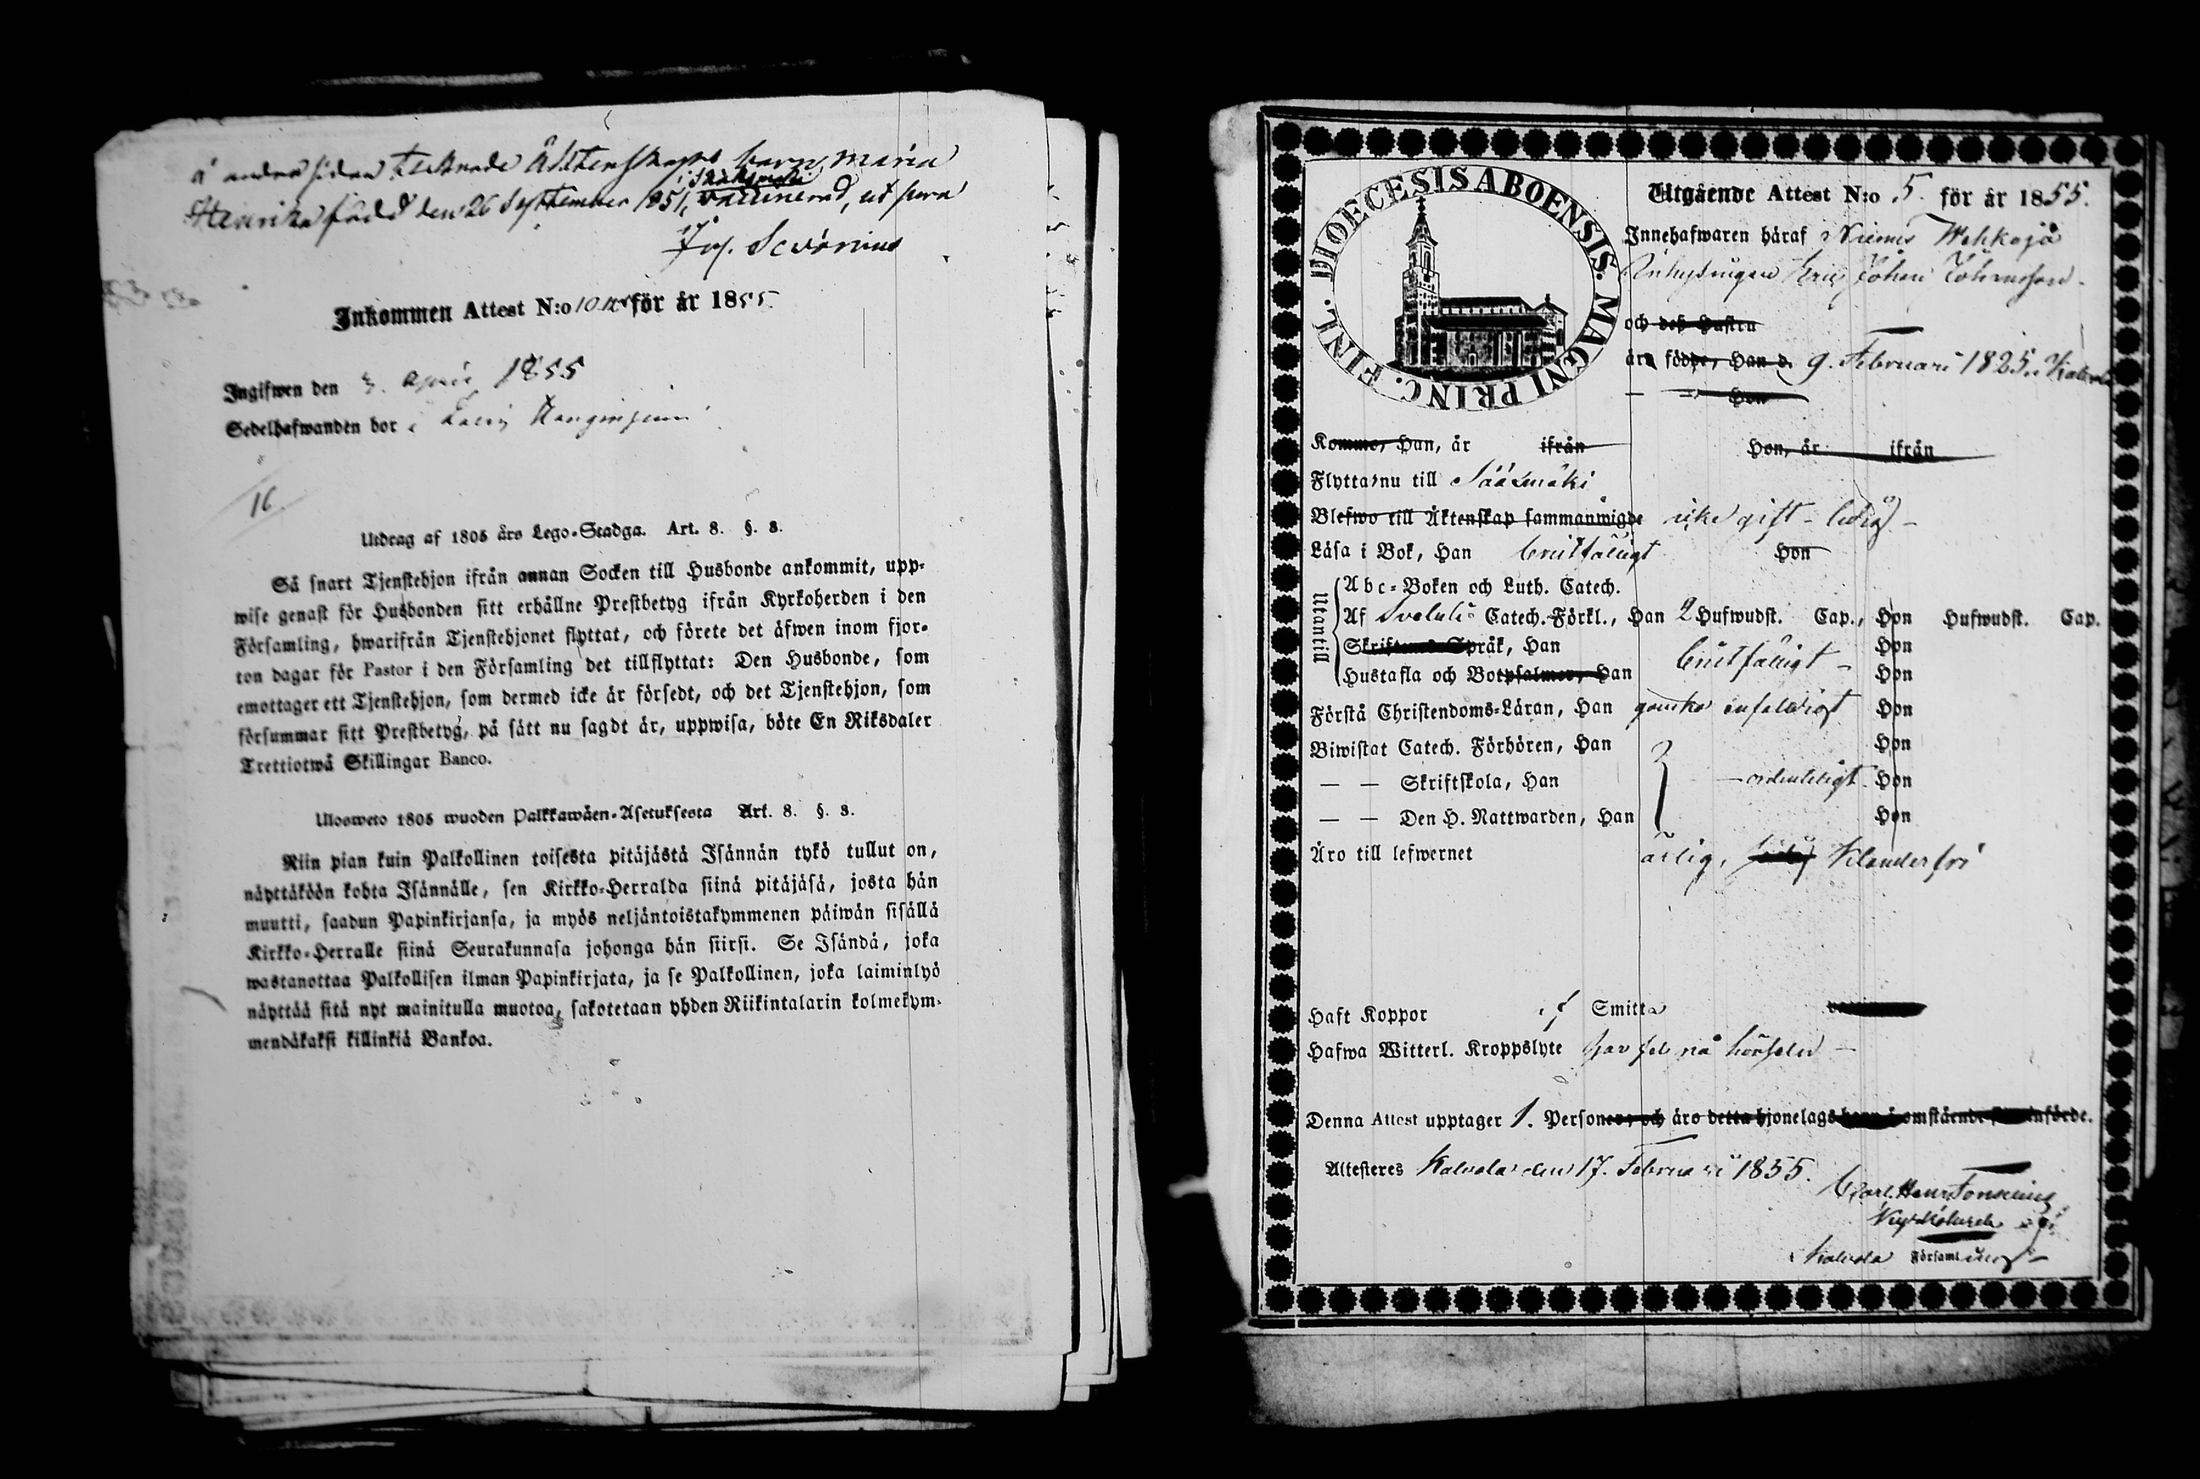 å andra sidan tecknade Äktenskaps barn Maria
Henrika född den 26 September 1851, vaccinerad, ut supra
Inkommen Attest N:o 10 för år 1855
Ingifwen den 3 April 1855
Sedelhafwanden bor i
16
Utdrag af 1805 års Lego-Stadga. Art. 8. §. 3.
Så snart Tjenstehjon ifrån annan Socken till Husbonde ankommit, upp-
wise genast för Husbonden sitt erhållne Prestbetyg ifrån Kyrkoherden i den
Församling, hwarifrån Tjenstehjonet flyttat, och förete det äfwen inom fjor-
ton dagar för Pastor i den Församling det tillflyttat: Den Husbonde, som
emottager ett Tjenstehjon, som dermed icke är försedt, och det Tjenstehjon, som
försummar sitt Prestbetyg, på sätt nu sagdt är, uppwisa, böte En Riksdaler
Trettiotwå Skillingar Banco.
Ulosweto 1805 wuoden Palkkawäen-Asetuksesta Art. 8. §. 3.
Niin pian kuin Palkollinen toisesta pitäjästä Isännän tykö tullut on,
näyttäköön kohta Isännälle, sen Kirkko-Herralda siinä pitäjäsä, josta hän
muutti, saadun Papinkirjansa, ja myös neljäntoistakymmenen päiwän sisällä
Kirkko-Herralle siinä Seurakunnasa johonga hän siirsi. Se Isändä, joka
wastanottaa Palkollisen ilman Papinkirjata, ja se Palkollinen, joka laiminlyö
näyttää sitä nyt mainitulla muotoa, sakotetaan yhden Riikintalarin kolmekym-
mendäkaksi killinkiä Bankoa.
DIOECESIS ABOENSIS. MAGNI PRINC. FINL.
Utgående Attest N:o 5 för år 1855.
Innehafwaren häraf Niemis
Inhysingen Eric Johan Johansson
och dess Hustru
äro födde, Han d. 9. Februari 1825 i Kalvola
— — Hon
Komne, Han, år ifrån Hon, år ifrån
Flytta nu till Sääsmäki
Blefwo till Äktenskap sammanwigde icke gift - ledig -
Läsa i Bok, Han Enfaldigt Hon
Utantill
Abc-Boken och Luth. Catech.
Af Svebelii Catech.-Förkl., Han 2 Hufwudst. Cap., Hon Hufwudst. Cap.
Skriftenes Språk, Han Hon
Hustafla och Botpsalmer, Han Enfaldigt - Hon
Förstå Christendoms-Läran, Han ganska enfaldigt Hon
Biwistat Catech. Förhören, Han Hon
— — Skriftskola, Han ordentligt Hon
— — Den H. Nattwarden, Han Hon
Äro till lefwernet ärlig, Klanderfri
Haft Koppor ej Smitta
Hafwa Witterl. Kroppslyte har fel på hörseln —
Denna Attest upptager 1. Personer, och äro detta hjonelags barn å omstående sida införde.
Attesteres Kalvola den 17. Februari 1855.
Carl Henr. Fonselius
Kyrkoherde i
Kalvola Församling